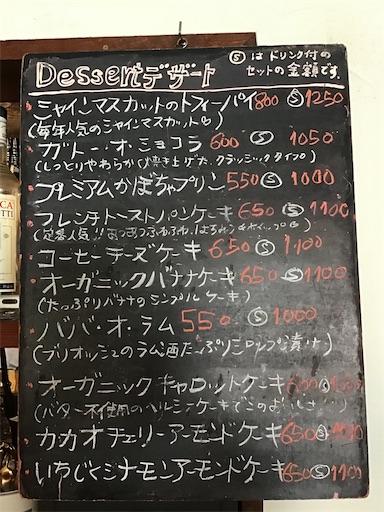 Dessertデザート
Ⓢは ドリンク付の
セットの金額です。
シャインマスカットのトフィーパイ 800 Ⓢ 1250
(毎年人気のシャインマスカット
ガトー・オ・ショコラ 600 Ⓢ 1050
(しっとりやわらかく焼き上げた。クラッシックタイプ)
プレミアムかぼちゃプリン 550 Ⓢ 1000
フレンチトーストパンケーキ 650 Ⓢ 1100
(定番人気!!
コーヒーチーズケーキ 650 Ⓢ 1100
オーガニックバナナケーキ 650 Ⓢ 1100
(たっぷりバナナのシンプルケーキ)
ババ・オ・ラム 550 Ⓢ 1000
(ブリオッシュのラム酒たっぷりシロップ漬け)
オーガニックキャロットケーキ Ⓢ
(バター不使用のヘルシーケーキ
カカオチェリーアーモンドケーキ 650 Ⓢ
いちじくシナモンアーモンドケーキ 650 Ⓢ 1100